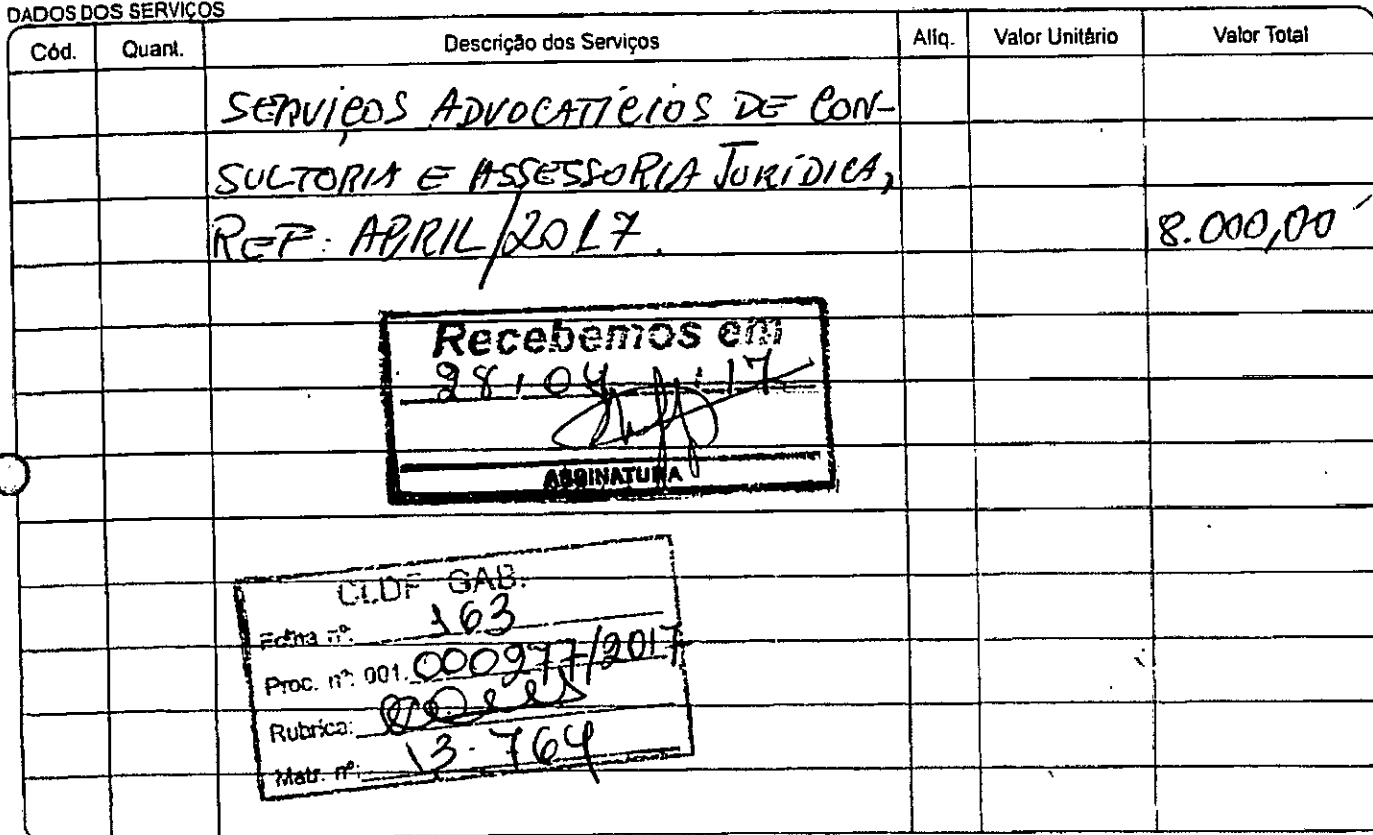 DADOS DOS SERVIÇOS
Cód. Quant. Descrição dos Serviços Alíq. Valor Unitário Valor Total
SERVIÇOS ADVOCATÍCIOS DE CON-
SULTORIA E ASSESSORIA JURÍDICA,
REF: ABRIL/2017. 8.000,00
Recebemos em
28 / 04 / 17
ASSINATURA
CLDF GAB.
Folha nº: 163
Proc. nº: 001.000977/2017
Rubrica:
Matr. nº: 13.764